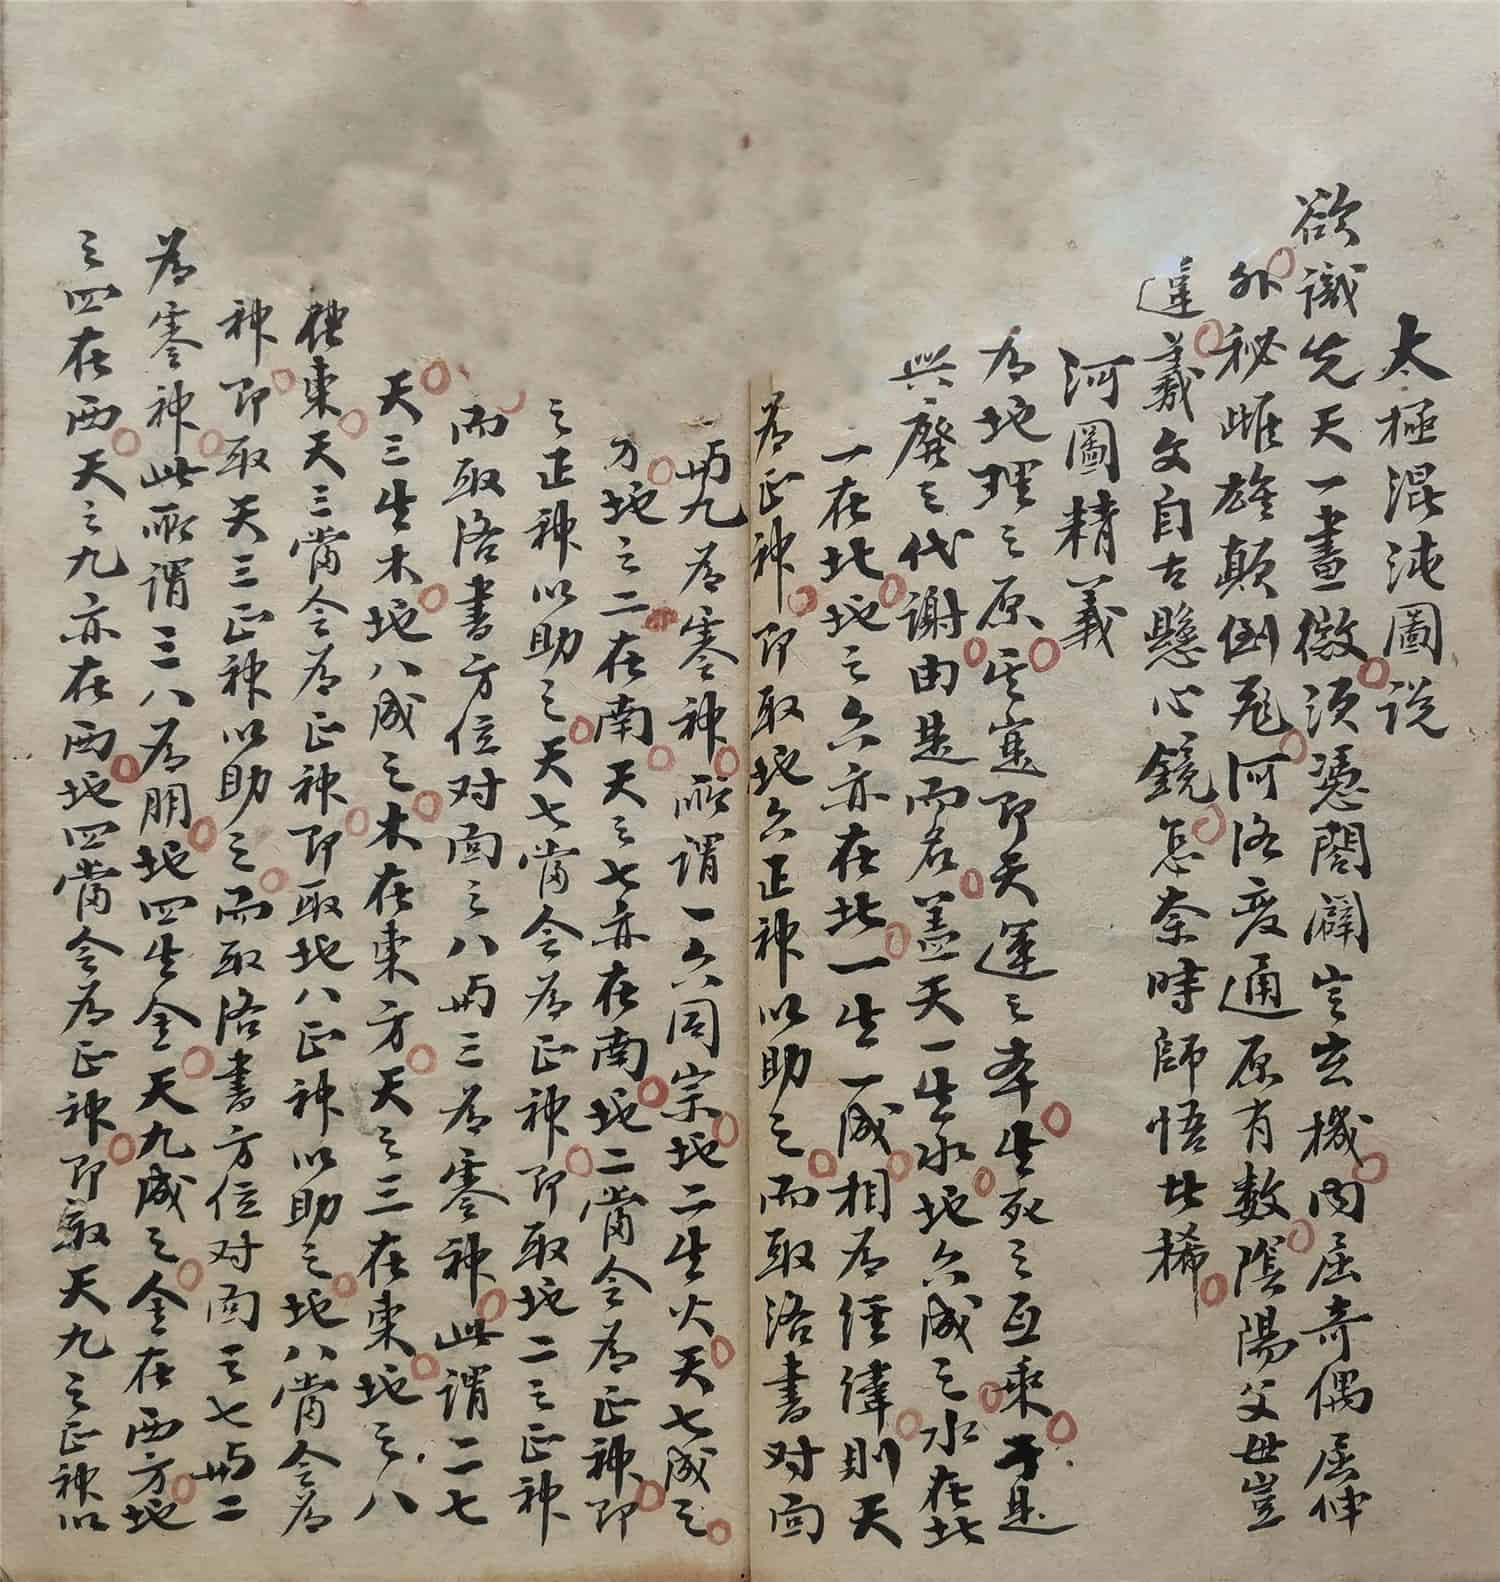 太極混沌圖說
欲識先天一畫微須憑闔闢豈玄機內屈奇偶屈伸
外秘雌雄顛倒飛河洛变通原有数陰陽父母豈
違羲文自古懸心鏡怎奈時師悟甚稀
河圖精義
为地理之原实寔即天運之本生死之互乘于是
興廢之代謝由是而名盖天一生水地六成之水在北
一在北地之六亦在北一生一成相为經緯則天
为正神即取地六正神以助之而取洛書对面
與九为零神所謂一六同宗地二生火天七成之
方地之二在南天之七亦在南地二當令为正神即
之正神以助之天七當令为正神即取地二之正神
而取洛書方位对面之八與三为零神此謂二七
天三生木地八成之木在東方天之三在東地之八
在東天三當令为正神即取地八正神以助之地八當令为
神即取天三正神以助之而取洛書方位对面之七與二
为零神此所謂三八为朋地四生金天九成之金在西方地
之四在西天之九亦在西地四當令为正神即取天九之正神以